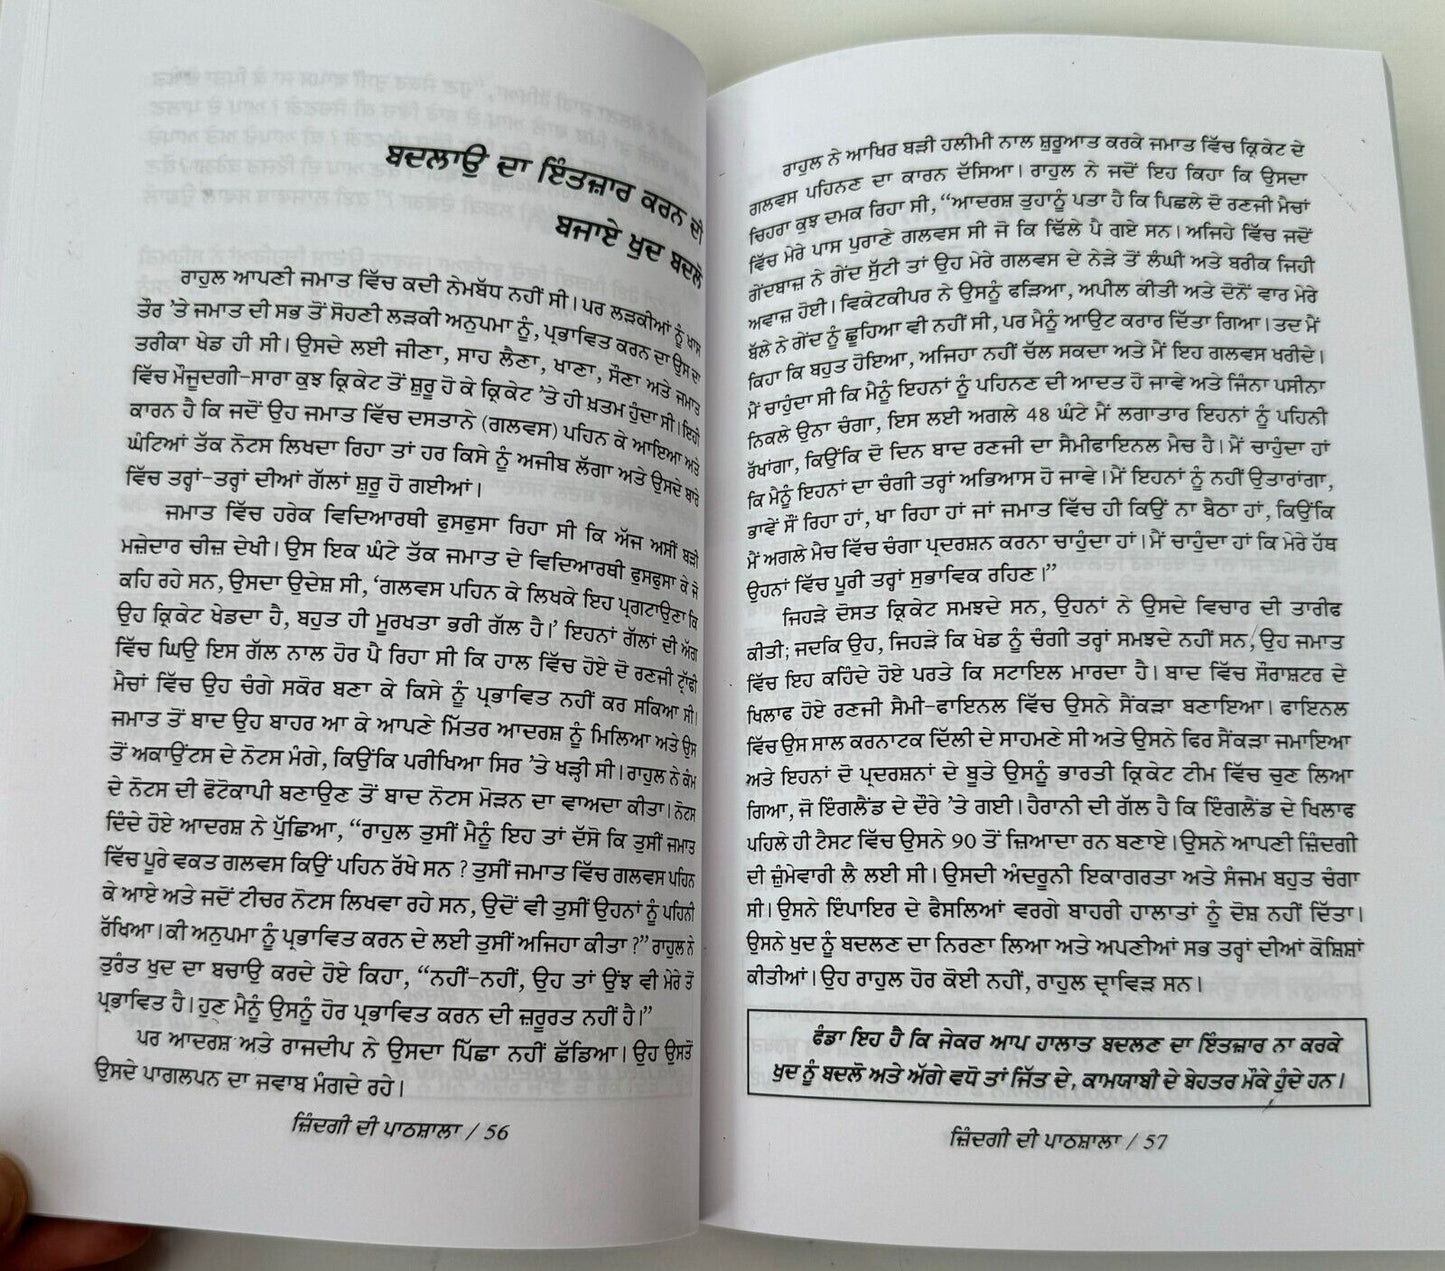 ਬਦਲਾਉ ਦਾ ਇੰਤਜ਼ਾਰ ਕਰਨ ਦੀ
ਬਜਾਏ ਖੁਦ ਬਦਲੋ
ਰਾਹੁਲ ਆਪਣੀ ਜਮਾਤ ਵਿੱਚ ਕਦੀ ਨੇਮਬੱਧ ਨਹੀਂ ਸੀ। ਪਰ ਲੜਕੀਆਂ ਨੂੰ ਖਾਸ
ਤੌਰ ’ਤੇ ਜਮਾਤ ਦੀ ਸਭ ਤੋਂ ਸੋਹਣੀ ਲੜਕੀ ਅਨੁਪਮਾ ਨੂੰ, ਪ੍ਰਭਾਵਿਤ ਕਰਨ ਦਾ ਉਸ ਦਾ
ਤਰੀਕਾ ਖੇਡ ਹੀ ਸੀ। ਉਸਦੇ ਲਈ ਜੀਣਾ, ਸਾਹ ਲੈਣਾ, ਖਾਣਾ, ਸੌਣਾ ਅਤੇ ਜਮਾਤ
ਵਿੱਚ ਮੌਜੂਦਗੀ-ਸਾਰਾ ਕੁਝ ਕ੍ਰਿਕੇਟ ਤੋਂ ਸ਼ੁਰੂ ਹੋ ਕੇ ਕ੍ਰਿਕੇਟ ’ਤੇ ਹੀ ਖ਼ਤਮ ਹੁੰਦਾ ਸੀ। ਇਹੀ
ਕਾਰਨ ਹੈ ਕਿ ਜਦੋਂ ਉਹ ਜਮਾਤ ਵਿੱਚ ਦਸਤਾਨੇ (ਗਲਵਸ) ਪਹਿਨ ਕੇ ਆਇਆ ਅਤੇ
ਘੰਟਿਆਂ ਤੱਕ ਨੋਟਸ ਲਿਖਦਾ ਰਿਹਾ ਤਾਂ ਹਰ ਕਿਸੇ ਨੂੰ ਅਜੀਬ ਲੱਗਾ ਅਤੇ ਉਸਦੇ ਬਾਰੇ
ਵਿੱਚ ਤਰ੍ਹਾਂ-ਤਰ੍ਹਾਂ ਦੀਆਂ ਗੱਲਾਂ ਸ਼ੁਰੂ ਹੋ ਗਈਆਂ।
ਜਮਾਤ ਵਿੱਚ ਹਰੇਕ ਵਿਦਿਆਰਥੀ ਫੁਸਫੁਸਾ ਰਿਹਾ ਸੀ ਕਿ ਅੱਜ ਅਸੀਂ ਬੜੀ
ਮਜ਼ੇਦਾਰ ਚੀਜ਼ ਦੇਖੀ। ਉਸ ਇਕ ਘੰਟੇ ਤੱਕ ਜਮਾਤ ਦੇ ਵਿਦਿਆਰਥੀ ਫੁਸਫੁਸਾ ਕੇ ਜੋ
ਕਹਿ ਰਹੇ ਸਨ, ਉਸਦਾ ਉਦੇਸ਼ ਸੀ, ‘ਗਲਵਸ ਪਹਿਨ ਕੇ ਲਿਖਕੇ ਇਹ ਪ੍ਰਗਟਾਉਣਾ ਕਿ
ਉਹ ਕ੍ਰਿਕੇਟ ਖੇਡਦਾ ਹੈ, ਬਹੁਤ ਹੀ ਮੂਰਖਤਾ ਭਰੀ ਗੱਲ ਹੈ।’ ਇਹਨਾਂ ਗੱਲਾਂ ਦੀ ਅੱਗ
ਵਿੱਚ ਘਿਉ ਇਸ ਗੱਲ ਨਾਲ ਹੋਰ ਪੈ ਰਿਹਾ ਸੀ ਕਿ ਹਾਲ ਵਿੱਚ ਹੋਏ ਦੋ ਰਣਜੀ ਟ੍ਰਾਫੀ
ਮੈਚਾਂ ਵਿੱਚ ਉਹ ਚੰਗੇ ਸਕੋਰ ਬਣਾ ਕੇ ਕਿਸੇ ਨੂੰ ਪ੍ਰਭਾਵਿਤ ਨਹੀਂ ਕਰ ਸਕਿਆ ਸੀ।
ਜਮਾਤ ਤੋਂ ਬਾਦ ਉਹ ਬਾਹਰ ਆ ਕੇ ਆਪਣੇ ਮਿੱਤਰ ਆਦਰਸ਼ ਨੂੰ ਮਿਲਿਆ ਅਤੇ ਉਸ
ਤੋਂ ਅਕਾਉਂਟਸ ਦੇ ਨੋਟਸ ਮੰਗੇ, ਕਿਉਂਕਿ ਪਰੀਖਿਆ ਸਿਰ ’ਤੇ ਖੜ੍ਹੀ ਸੀ। ਰਾਹੁਲ ਨੇ ਕੰਮ
ਦੇ ਨੋਟਸ ਦੀ ਫੋਟੋਕਾਪੀ ਬਣਾਉਣ ਤੋਂ ਬਾਦ ਨੋਟਸ ਮੋੜਨ ਦਾ ਵਾਅਦਾ ਕੀਤਾ। ਨੋਟਸ
ਦਿੰਦੇ ਹੋਏ ਆਦਰਸ਼ ਨੇ ਪੁੱਛਿਆ, “ਰਾਹੁਲ ਤੁਸੀਂ ਮੈਨੂੰ ਇਹ ਤਾਂ ਦੱਸੋ ਕਿ ਤੁਸੀਂ ਜਮਾਤ
ਵਿੱਚ ਪੂਰੇ ਵਕਤ ਗਲਵਸ ਕਿਉਂ ਪਹਿਨ ਰੱਖੇ ਸਨ ? ਤੁਸੀਂ ਜਮਾਤ ਵਿੱਚ ਗਲਵਸ ਪਹਿਨ
ਕੇ ਆਏ ਅਤੇ ਜਦੋਂ ਟੀਚਰ ਨੋਟਸ ਲਿਖਵਾ ਰਹੇ ਸਨ, ਉਦੋਂ ਵੀ ਤੁਸੀਂ ਉਹਨਾਂ ਨੂੰ ਪਹਿਨੀ
ਰੱਖਿਆ। ਕੀ ਅਨੁਪਮਾ ਨੂੰ ਪ੍ਰਭਾਵਿਤ ਕਰਨ ਦੇ ਲਈ ਤੁਸੀਂ ਅਜਿਹਾ ਕੀਤਾ ?” ਰਾਹੁਲ ਨੇ
ਤੁਰੰਤ ਖੁਦ ਦਾ ਬਚਾਉ ਕਰਦੇ ਹੋਏ ਕਿਹਾ, “ਨਹੀਂ-ਨਹੀਂ, ਉਹ ਤਾਂ ਉਂਝ ਵੀ ਮੇਰੇ ਤੋਂ
ਪ੍ਰਭਾਵਿਤ ਹੈ। ਹੁਣ ਮੈਨੂੰ ਉਸਨੂੰ ਹੋਰ ਪ੍ਰਭਾਵਿਤ ਕਰਨ ਦੀ ਜ਼ਰੂਰਤ ਨਹੀਂ ਹੈ।”
ਪਰ ਆਦਰਸ਼ ਅਤੇ ਰਾਜਦੀਪ ਨੇ ਉਸਦਾ ਪਿੱਛਾ ਨਹੀਂ ਛੱਡਿਆ। ਉਹ ਉਸਤੋਂ
ਉਸਦੇ ਪਾਗਲਪਨ ਦਾ ਜਵਾਬ ਮੰਗਦੇ ਰਹੇ।
ਜ਼ਿੰਦਗੀ ਦੀ ਪਾਠਸ਼ਾਲਾ / 56
ਰਾਹੁਲ ਨੇ ਆਖਿਰ ਬੜੀ ਹਲੀਮੀ ਨਾਲ ਸ਼ੁਰੂਆਤ ਕਰਕੇ ਜਮਾਤ ਵਿੱਚ ਕ੍ਰਿਕੇਟ ਦੇ
ਗਲਵਸ ਪਹਿਨਣ ਦਾ ਕਾਰਨ ਦੱਸਿਆ। ਰਾਹੁਲ ਨੇ ਜਦੋਂ ਇਹ ਕਿਹਾ ਕਿ ਉਸਦਾ
ਚਿਹਰਾ ਕੁਝ ਦਮਕ ਰਿਹਾ ਸੀ, “ਆਦਰਸ਼ ਤੁਹਾਨੂੰ ਪਤਾ ਹੈ ਕਿ ਪਿਛਲੇ ਦੋ ਰਣਜੀ ਮੈਚਾਂ
ਵਿੱਚ ਮੇਰੇ ਪਾਸ ਪੁਰਾਣੇ ਗਲਵਸ ਸੀ ਜੋ ਕਿ ਢਿੱਲੇ ਪੈ ਗਏ ਸਨ। ਅਜਿਹੇ ਵਿੱਚ ਜਦੋਂ
ਗੇਂਦਬਾਜ਼ ਨੇ ਗੇਂਦ ਸੁੱਟੀ ਤਾਂ ਉਹ ਮੇਰੇ ਗਲਵਸ ਦੇ ਨੇੜੇ ਤੋਂ ਲੰਘੀ ਅਤੇ ਬਰੀਕ ਜਿਹੀ
ਅਵਾਜ਼ ਹੋਈ। ਵਿਕੇਟਕੀਪਰ ਨੇ ਉਸਨੂੰ ਫੜਿਆ, ਅਪੀਲ ਕੀਤੀ ਅਤੇ ਦੋਨੋਂ ਵਾਰ ਮੇਰੇ
ਬੱਲੇ ਨੇ ਗੇਂਦ ਨੂੰ ਛੂਹਿਆ ਵੀ ਨਹੀਂ ਸੀ, ਪਰ ਮੈਨੂੰ ਆਉਟ ਕਰਾਰ ਦਿੱਤਾ ਗਿਆ। ਤਦ ਮੈਂ
ਕਿਹਾ ਕਿ ਬਹੁਤ ਹੋਇਆ, ਅਜਿਹਾ ਨਹੀਂ ਚੱਲ ਸਕਦਾ ਅਤੇ ਮੈਂ ਇਹ ਗਲਵਸ ਖਰੀਦੇ।
ਮੈਂ ਚਾਹੁੰਦਾ ਸੀ ਕਿ ਮੈਨੂੰ ਇਹਨਾਂ ਨੂੰ ਪਹਿਨਣ ਦੀ ਆਦਤ ਹੋ ਜਾਵੇ ਅਤੇ ਜਿੰਨਾ ਪਸੀਨਾ
ਨਿਕਲੇ ਉਨਾ ਚੰਗਾ, ਇਸ ਲਈ ਅਗਲੇ 48 ਘੰਟੇ ਮੈਂ ਲਗਾਤਾਰ ਇਹਨਾਂ ਨੂੰ ਪਹਿਨੀ
ਰੱਖਾਂਗਾ, ਕਿਉਂਕਿ ਦੋ ਦਿਨ ਬਾਦ ਰਣਜੀ ਦਾ ਸੈਮੀਫਾਇਨਲ ਮੈਚ ਹੈ। ਮੈਂ ਚਾਹੁੰਦਾ ਹਾਂ
ਕਿ ਮੈਨੂੰ ਇਹਨਾਂ ਦਾ ਚੰਗੀ ਤਰ੍ਹਾਂ ਅਭਿਆਸ ਹੋ ਜਾਵੇ। ਮੈਂ ਇਹਨਾਂ ਨੂੰ ਨਹੀਂ ਉਤਾਰਾਂਗਾ,
ਭਾਵੇਂ ਸੌਂ ਰਿਹਾ ਹਾਂ, ਖਾ ਰਿਹਾ ਹਾਂ ਜਾਂ ਜਮਾਤ ਵਿੱਚ ਹੀ ਕਿਉਂ ਨਾ ਬੈਠਾ ਹਾਂ, ਕਿਉਂਕਿ
ਮੈਂ ਅਗਲੇ ਮੈਚ ਵਿੱਚ ਚੰਗਾ ਪ੍ਰਦਰਸ਼ਨ ਕਰਨਾ ਚਾਹੁੰਦਾ ਹਾਂ। ਮੈਂ ਚਾਹੁੰਦਾ ਹਾਂ ਕਿ ਮੇਰੇ ਹੱਥ
ਉਹਨਾਂ ਵਿੱਚ ਪੂਰੀ ਤਰ੍ਹਾਂ ਸੁਭਾਵਿਕ ਰਹਿਣ।”
ਜਿਹੜੇ ਦੋਸਤ ਕ੍ਰਿਕੇਟ ਸਮਝਦੇ ਸਨ, ਉਹਨਾਂ ਨੇ ਉਸਦੇ ਵਿਚਾਰ ਦੀ ਤਾਰੀਫ
ਕੀਤੀ; ਜਦਕਿ ਉਹ, ਜਿਹੜੇ ਕਿ ਖੇਡ ਨੂੰ ਚੰਗੀ ਤਰ੍ਹਾਂ ਸਮਝਦੇ ਨਹੀਂ ਸਨ, ਉਹ ਜਮਾਤ
ਵਿੱਚ ਇਹ ਕਹਿੰਦੇ ਹੋਏ ਪਰਤੇ ਕਿ ਸਟਾਇਲ ਮਾਰਦਾ ਹੈ। ਬਾਦ ਵਿੱਚ ਸੌਰਾਸ਼ਟਰ ਦੇ
ਖਿਲਾਫ ਹੋਏ ਰਣਜੀ ਸੈਮੀ-ਫਾਇਨਲ ਵਿੱਚ ਉਸਨੇ ਸੈਂਕੜਾ ਬਣਾਇਆ। ਫਾਇਨਲ
ਵਿੱਚ ਉਸ ਸਾਲ ਕਰਨਾਟਕ ਦਿੱਲੀ ਦੇ ਸਾਹਮਣੇ ਸੀ ਅਤੇ ਉਸਨੇ ਫਿਰ ਸੈਂਕੜਾ ਜਮਾਇਆ
ਅਤੇ ਇਹਨਾਂ ਦੋ ਪ੍ਰਦਰਸ਼ਨਾਂ ਦੇ ਬੂਤੇ ਉਸਨੂੰ ਭਾਰਤੀ ਕ੍ਰਿਕੇਟ ਟੀਮ ਵਿੱਚ ਚੁਣ ਲਿਆ
ਗਿਆ, ਜੋ ਇੰਗਲੈਂਡ ਦੇ ਦੌਰੇ ’ਤੇ ਗਈ। ਹੈਰਾਨੀ ਦੀ ਗੱਲ ਹੈ ਕਿ ਇੰਗਲੈਂਡ ਦੇ ਖਿਲਾਫ
ਪਹਿਲੇ ਹੀ ਟੈਸਟ ਵਿੱਚ ਉਸਨੇ 90 ਤੋਂ ਜ਼ਿਆਦਾ ਰਨ ਬਣਾਏ। ਉਸਨੇ ਆਪਣੀ ਜ਼ਿੰਦਗੀ
ਦੀ ਜ਼ੁੰਮੇਵਾਰੀ ਲੈ ਲਈ ਸੀ। ਉਸਦੀ ਅੰਦਰੂਨੀ ਇਕਾਗਰਤਾ ਅਤੇ ਸੰਜਮ ਬਹੁਤ ਚੰਗਾ
ਸੀ। ਉਸਨੇ ਇੰਪਾਇਰ ਦੇ ਫੈਸਲਿਆਂ ਵਰਗੇ ਬਾਹਰੀ ਹਾਲਾਤਾਂ ਨੂੰ ਦੋਸ਼ ਨਹੀਂ ਦਿੱਤਾ।
ਉਸਨੇ ਖੁਦ ਨੂੰ ਬਦਲਣ ਦਾ ਨਿਰਣਾ ਲਿਆ ਅਤੇ ਅਪਣੀਆਂ ਸਭ ਤਰ੍ਹਾਂ ਦੀਆਂ ਕੋਸ਼ਿਸ਼ਾਂ
ਕੀਤੀਆਂ। ਉਹ ਰਾਹੁਲ ਹੋਰ ਕੋਈ ਨਹੀਂ, ਰਾਹੁਲ ਦ੍ਰਾਵਿੜ ਸਨ।
ਫੰਡਾ ਇਹ ਹੈ ਕਿ ਜੇਕਰ ਆਪ ਹਾਲਾਤ ਬਦਲਣ ਦਾ ਇੰਤਜ਼ਾਰ ਨਾ ਕਰਕੇ
ਖੁਦ ਨੂੰ ਬਦਲੋ ਅਤੇ ਅੱਗੇ ਵਧੋ ਤਾਂ ਜਿੱਤ ਦੇ, ਕਾਮਯਾਬੀ ਦੇ ਬੇਹਤਰ ਮੌਕੇ ਹੁੰਦੇ ਹਨ।
ਜ਼ਿੰਦਗੀ ਦੀ ਪਾਠਸ਼ਾਲਾ / 57